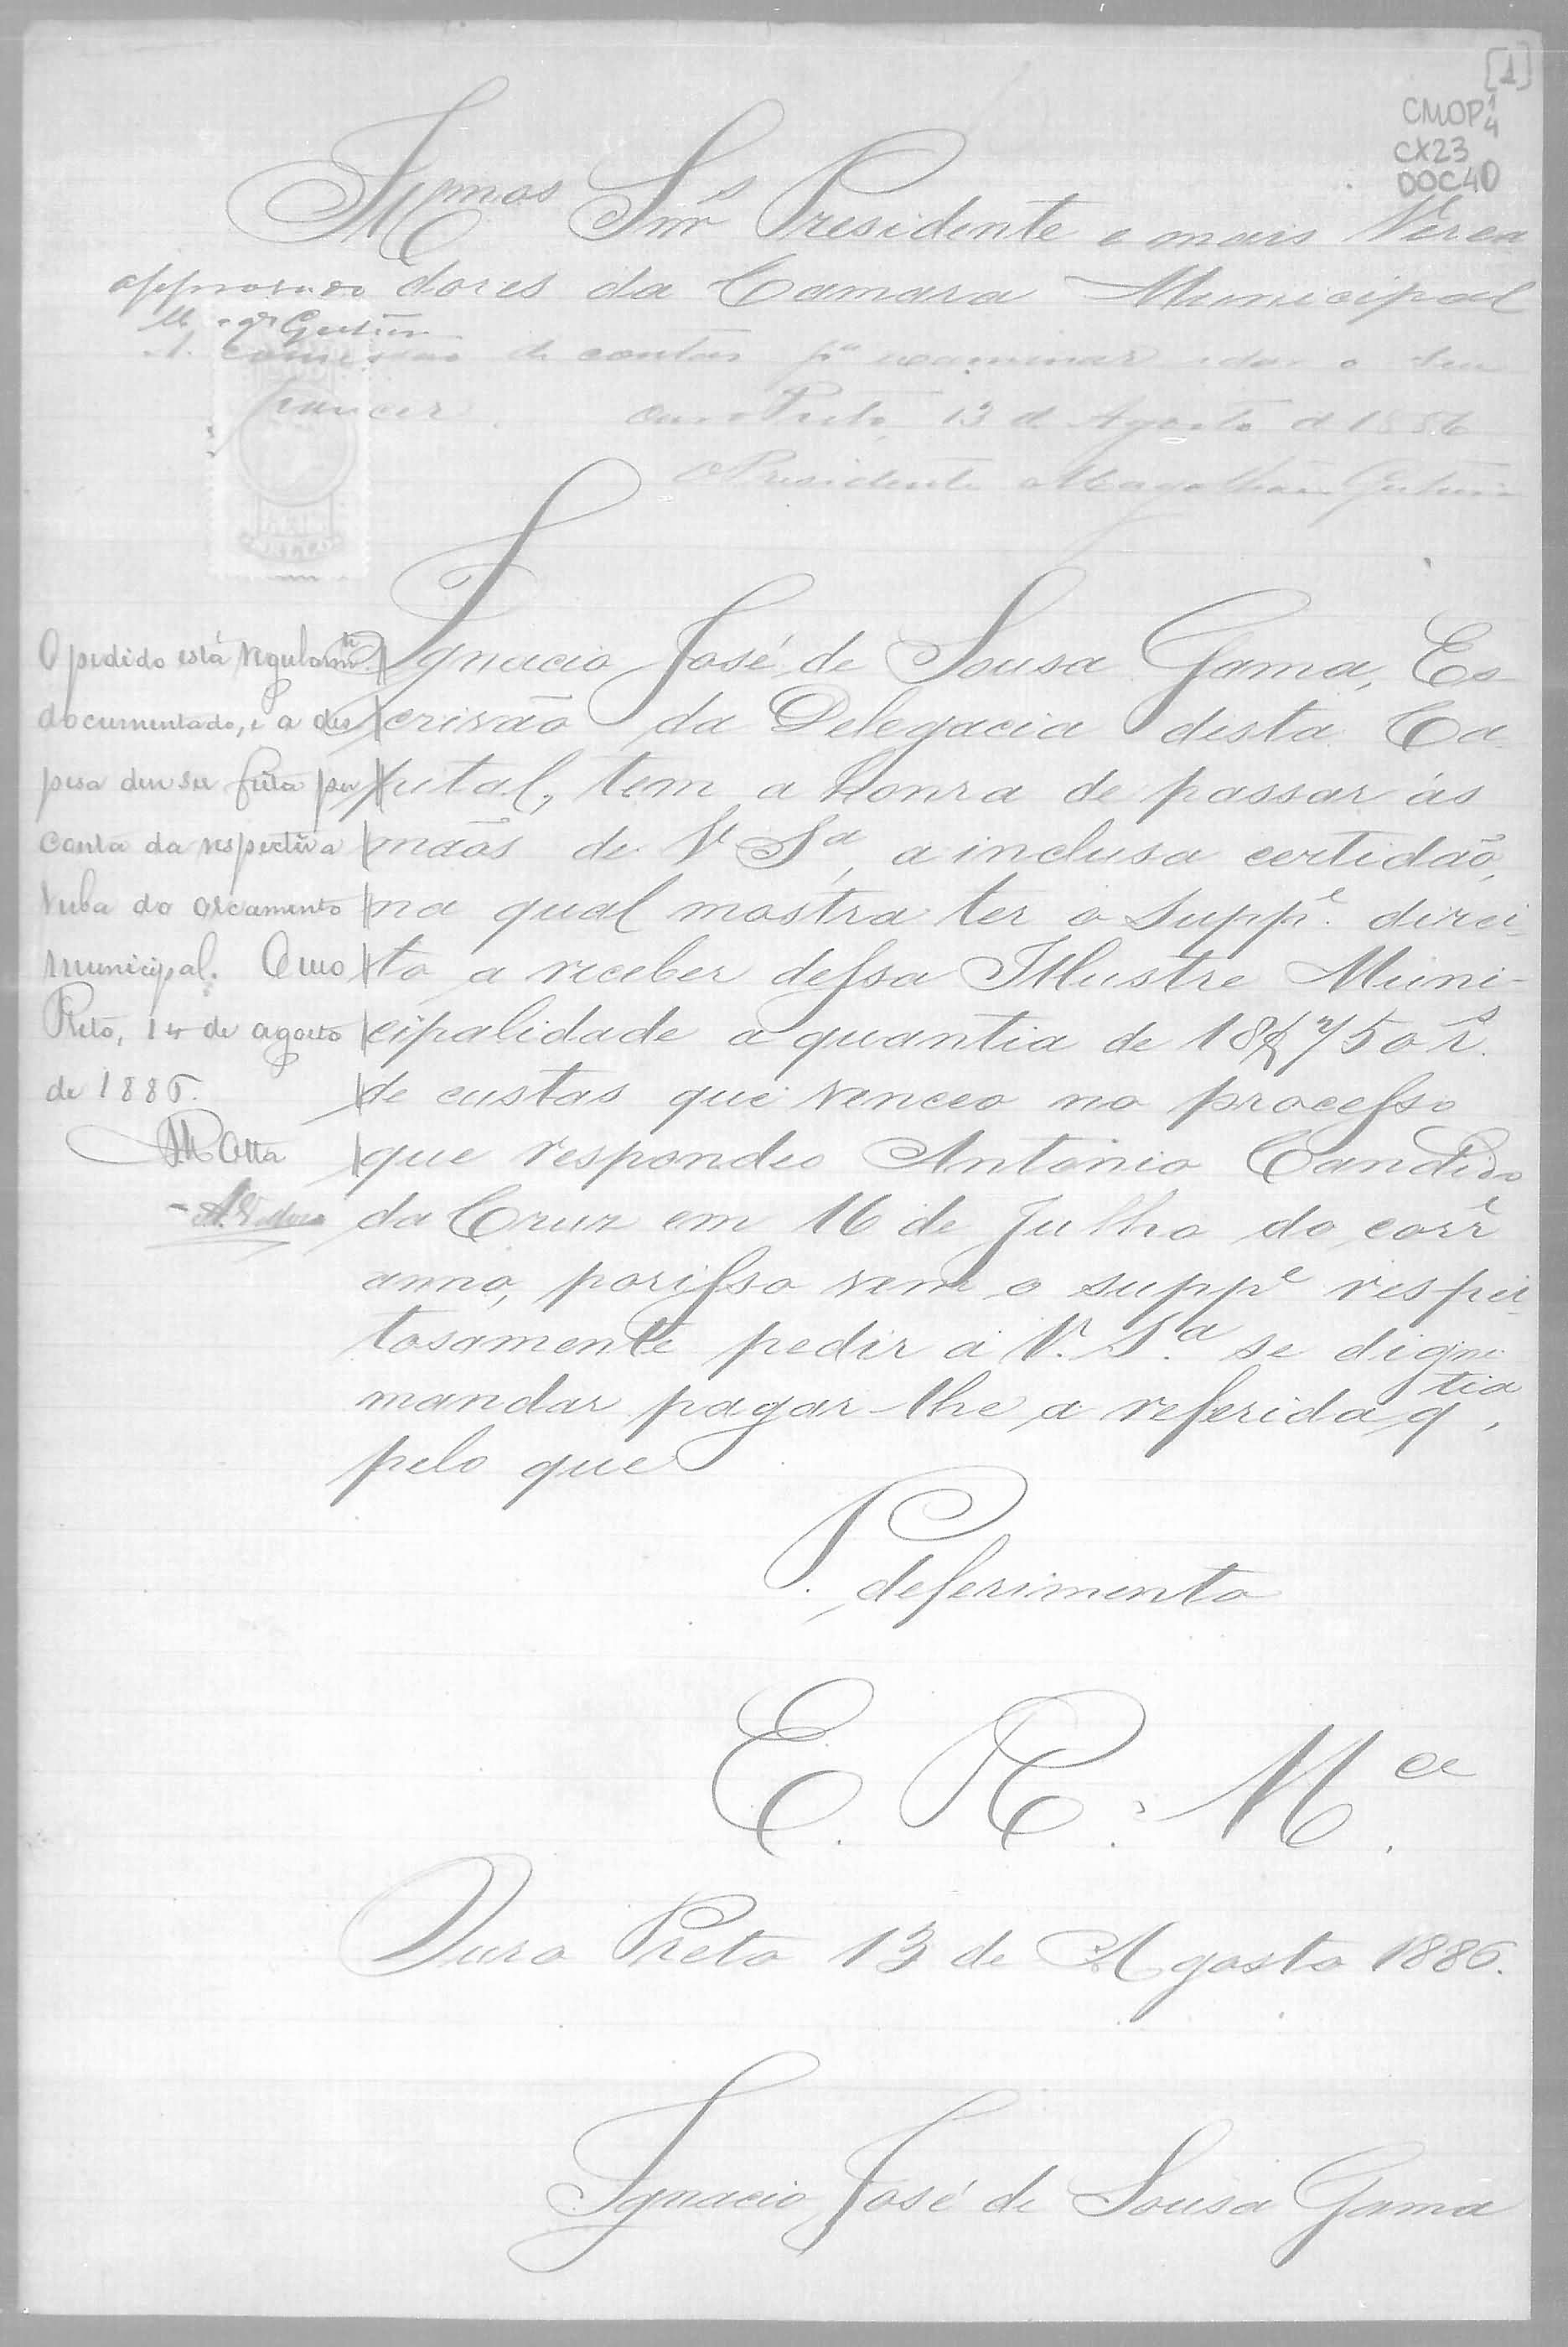 [1]
CMOP 1/4
CX23
DOC40
Illmos Snrs Presidente e mais Verea
dores da Camara Municipal
approvado
M. Gesteira
Á comissão de contas pa examinar e dar o seu
parecer. Ouro Preto, 13 de Agosto de 1886
O Presidente Magalhães Gesteira
Ignacio José de Sousa Gama, Es-
crivão da Delegacia desta Ca-
pital, tem a honra de passar ás
mãos de V. Sa, a inclusa certidão,
na qual mostra ter o suppe. direi-
to a receber dessa Illustre Muni-
cipalidade a quantia de 18$750 rs.
de custas que venceo no processo
que respondeo Antonio Candido
da Cruz em 16 de Julho do corre
anno, porisso vem o suppe respei-
tosamente pedir a V. Sa. se digne
mandar pagar-lhe a referida qtia,
pelo que
P. deferimento
E. R. Mce.
Ouro Preto 13 de Agosto 1886.
Ignacio José de Sousa Gama
O pedido está regularmte.
documentado, e a des
pesa deve ser feita por
conta da respectiva
verba do orçamento
municipal. Ouro
Preto, 14 de agosto
de 1886.
M Otta